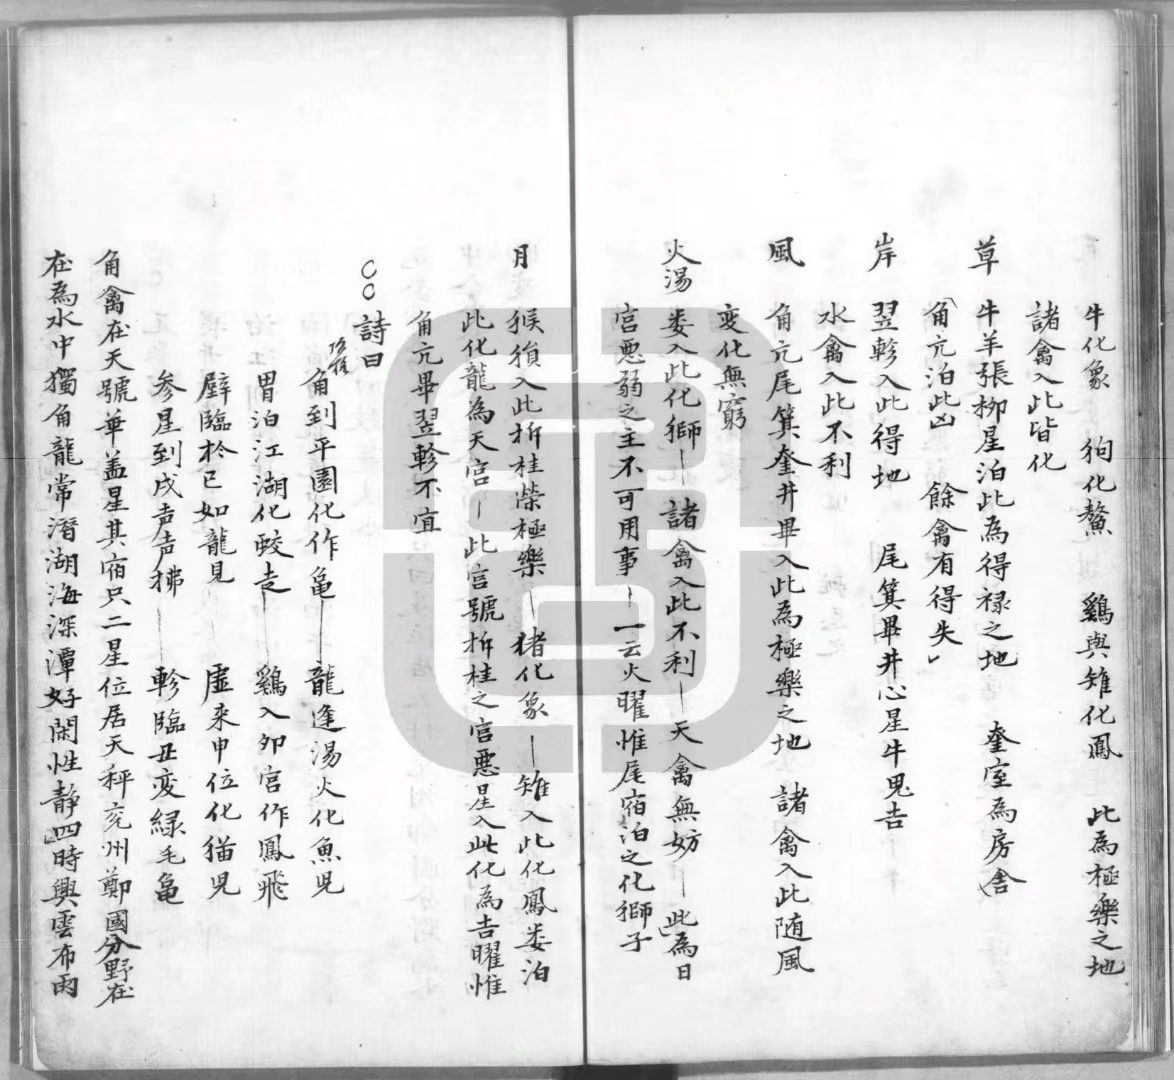 牛化象　狗化鰲　鷄與雉化鳳　此為極樂之地
諸禽入此皆化
草　牛羊張柳星泊此為得禄之地　奎室為房舎
角亢泊此凶　餘禽有得失
岸　翌軫入此得地　尾箕畢井心星牛鬼吉
水禽入此不利
風　角亢尾箕奎井畢入此為極樂之地　諸禽入此随風
变化無窮
火湯　娄入此化獅｜諸禽入此不利｜天禽無妨｜此為日
宮悪弱之主不可用事｜一云火曜惟尾宿泊之化獅子
月　猴猿入此折桂榮極樂｜猪化象｜雉入此化鳳娄泊
此化龍為天宮｜此宮號折桂之宮悪星入此化為吉曜惟
角亢畢翌軫不宜
○○詩曰
角到平園化作亀｜龍逢湯火化魚児
胃泊江湖化蛟走｜鷄入卯宮作鳳飛
壁臨於巳如龍見　虚来申位化猫児
参星到戌声声拂｜軫臨丑变緑毛亀
角禽在天號華盖星其宿只二星位居天秤兖州鄭國分野在
在為水中獨角龍常潛湖海深潭好閑性靜四時興雲布雨